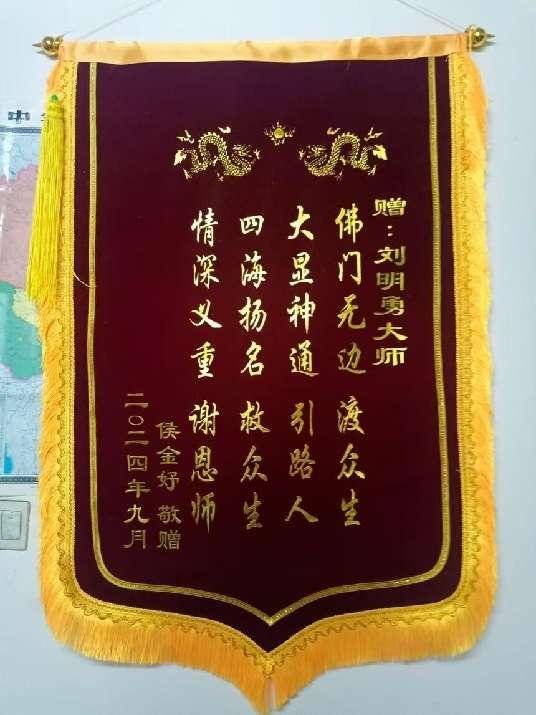 赠：刘明勇大师
佛门无边 渡众生
大显神通 引路人
四海扬名 救众生
情深义重 谢恩师
侯金妤 敬赠
二〇二四年九月
中